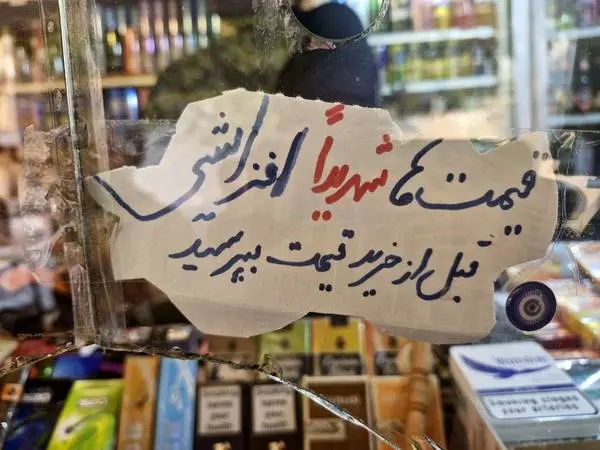 قیمت‌ها شدیداً افزایشی
قبل از خرید قیمت بپرسید
Smoking clogs
your arteries